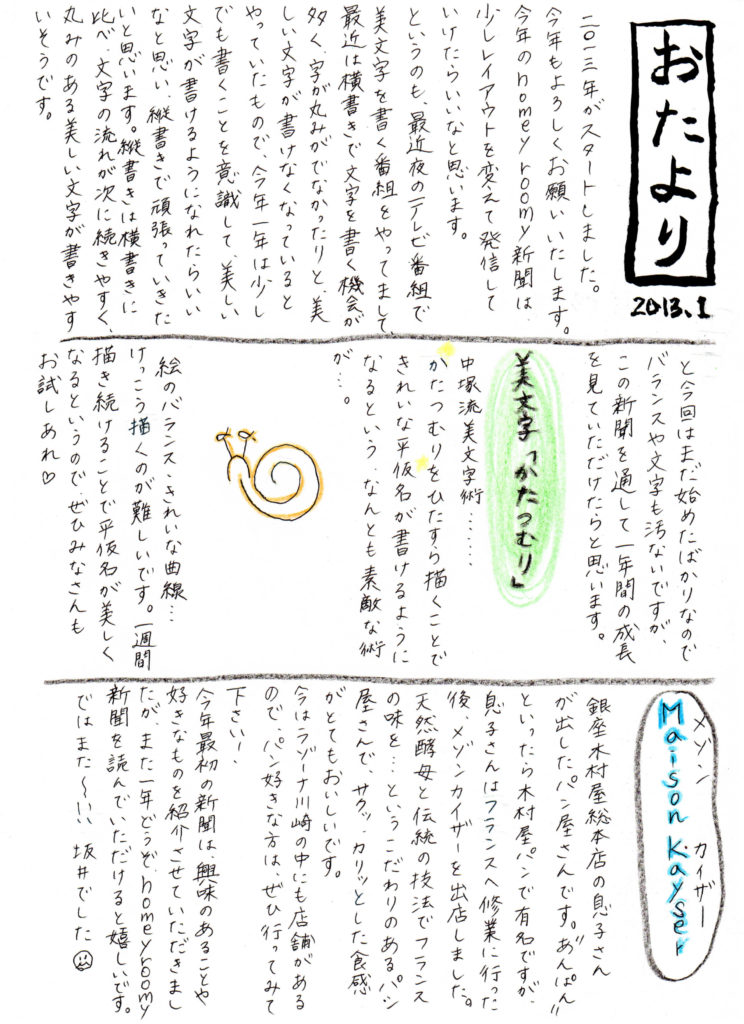 おたより
2013.1
二〇一三年がスタートしました。
今年もよろしくお願いいたします。
今年のhomey roomy新聞は、
少しレイアウトを変えて発信して
いけたらいいなと思います。
というのも、最近夜のテレビ番組で
美文字を書く番組をやってまして、
最近は横書きで文字を書く機会が
多く、字が丸みがでなかったりと、美
しい文字が書けなくなっていると
やっていたもので、今年一年は少し
でも書くことを意識して、美しい
文字が書けるようになれたらいい
なと思い、縦書きで頑張っていきた
いと思います。縦書きは横書きに
比べ、文字の流れが次に続きやすく、
丸みのある美しい文字が書きやす
いそうです。
と今回はまだ始めたばかりなので
バランスや文字も汚ないですが、
この新聞を通して一年間の成長
を見ていただけたらと思います。
美文字「かたつむり」
中塚流美文字術……
かたつむりをひたすら描くことで
きれいな平仮名が書けるように
なるという、なんとも素敵な術
が…。
絵のバランス・きれいな曲線…
けっこう描くのが難しいです。一週間
描き続けることで平仮名が美しく
なるというので、ぜひみなさんも
お試しあれ♡
メゾン カイザー
Maison Kayser
銀座木村屋総本店の息子さん
が出したパン屋さんです。"あんぱん"
といったら木村屋パンで有名ですが、
息子さんはフランスへ修業に行った
後、メゾンカイザーを出店しました。
天然酵母と伝統の技法でフランス
の味を…というこだわりのあるパン
屋さんで、サクッ、カリッとした食感
がとてもおいしいです。
今はラゾーナ川崎の中にも店舗がある
ので、パン好きな方は、ぜひ行ってみて
下さい!、
今年最初の新聞は、興味のあることや
好きなものを紹介させていただきまし
たが、また一年どうぞ、homey roomy
新聞を読んでいただけると嬉しいです。
ではまた〜!!! 坂井でした